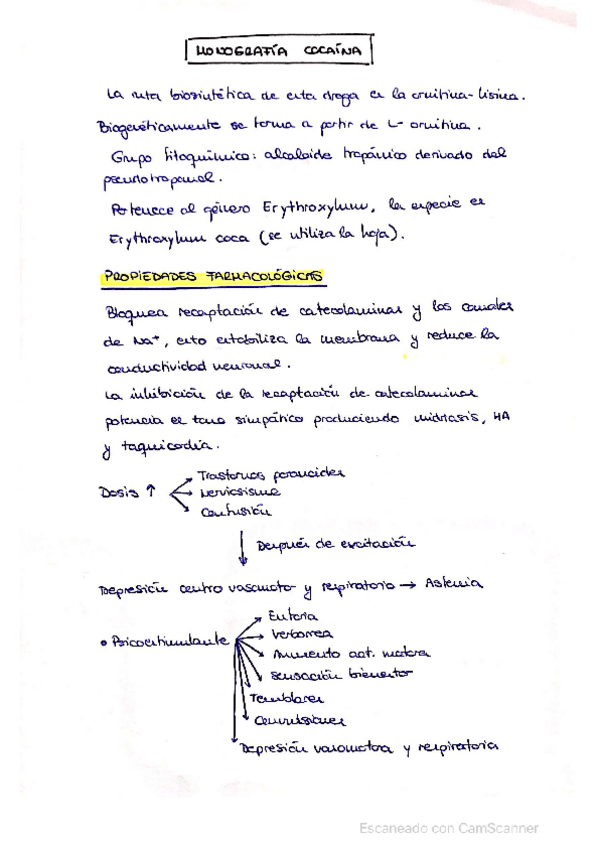 MONOGRAFÍA COCAÍNA
La ruta biosintética de esta droga es la ornitina-lisina.
Biogenéticamente se forma a partir de L-ornitina.
Grupo fitoquímico: alcaloide tropánico derivado del
pseudotropanol.
Pertenece al género Erythroxylum, la especie es
Erythroxylum coca (se utiliza la hoja).
PROPIEDADES FARMACOLÓGICAS
Bloquea recaptación de catecolaminas y los canales
de Na+, esto estabiliza la membrana y reduce la
conductividad neuronal.
La inhibición de la recaptación de catecolaminas
potencia el tono simpático produciendo midriasis, HA
y taquicardia.
Dosis ↑
Trastornos paranoides
Nerviosismo
Confusión
Después de excitación
Depresión centro vasomotor y respiratorio → Astenia
• Psicoestimulante
Euforia
Verborrea
Aumento act. motora
Sensación bienestar
Temblores
Convulsiones
Depresión vasomotora y respiratoria
Escaneado con CamScanner